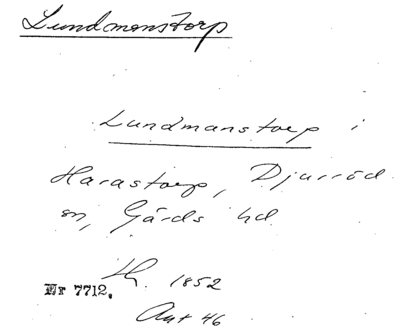 Lundmanstorp
Lundmanstorp i
Harastorp, Djurröd
sn, Gärds hd
th. 1852
Nr 7712.
Ant 46